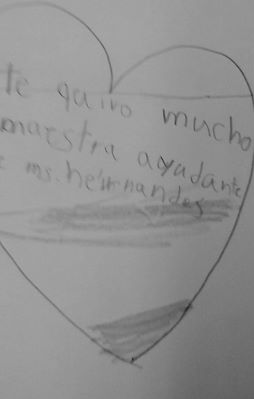 te quiro mucho
maestra ayudante
ms. hernandes